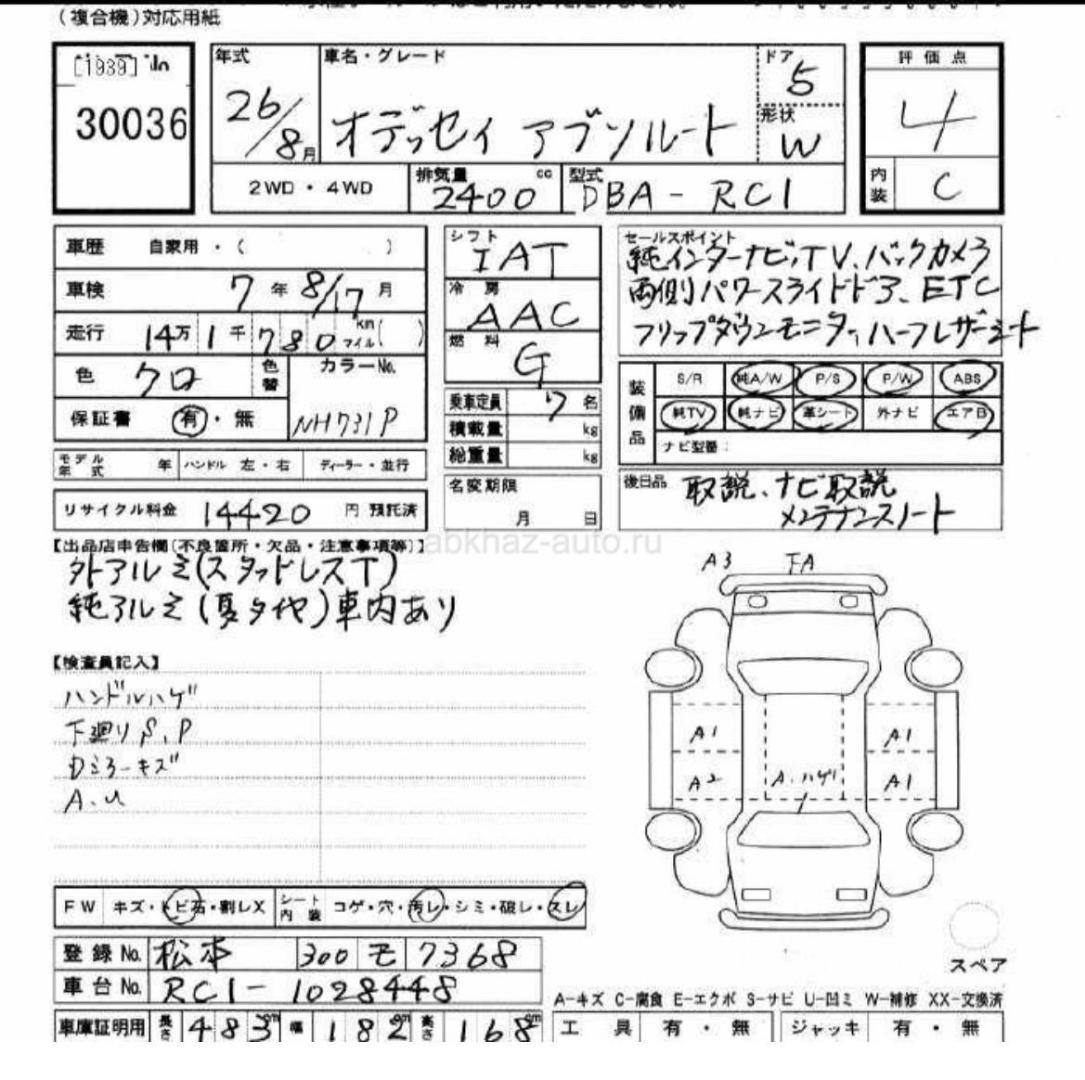 (複合機)対応用紙
[1939] No
30036
年式 車名・グレード ドア 5 評価点
26/8月 オデッセイ アブソルート 形状 W 4
2WD・4WD 排気量 2400 cc 型式 DBA-RC1 内装 C
車歴 自家用・( )
車検 7年 8/17月
走行 14万1千780 km マイル( )
色 クロ 色替 カラーNo. NH731P
保証書 有・無
モデル年式 年 ハンドル 左・右 ディーラー・並行
リサイクル料金 14420 円 預託済
シフト IAT
冷房 AAC
燃料 G
乗車定員 7 名
積載量 kg
総重量 kg
名変期限
月 日
セールスポイント
純インターナビ、TV、バックカメラ
両側パワースライドドア、ETC
フリップダウンモニター、ハーフレザーシート
装備品 S/R 純A/W P/S P/W ABS
純TV 純ナビ 革シート 外ナビ エアB
ナビ型番:
後日品 取説、ナビ取説
メンテナンスノート
【出品店申告欄(不良箇所・欠品・注意事項等)】
abkhaz-auto.ru
外アルミ(スタッドレスT)
純アルミ(夏タイヤ)車内あり
【検査員記入】
ハンドルハゲ
下廻りS、P
Dミラーキズ
A、U
A3 FA
A1 A1
A2 A、ハゲ1 A1
FW キズ・トビ石・割レX シート内装 コゲ・穴・汚レ・シミ・破レ・スレ
スペア
登録No. 松本 300 モ 7368
車台No. RC1-1028448
A-キズ C-腐食 E-エクボ S-サビ U-凹ミ W-補修 XX-交換済
車庫証明用 長さ 483cm 幅 182cm 高さ 168cm 工具 有・無 ジャッキ 有・無